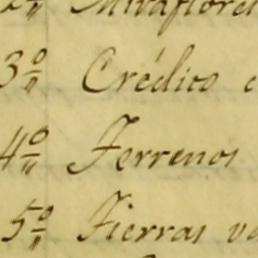 Miraflores
3º Crédito
4º Terrenos
5º Tierras